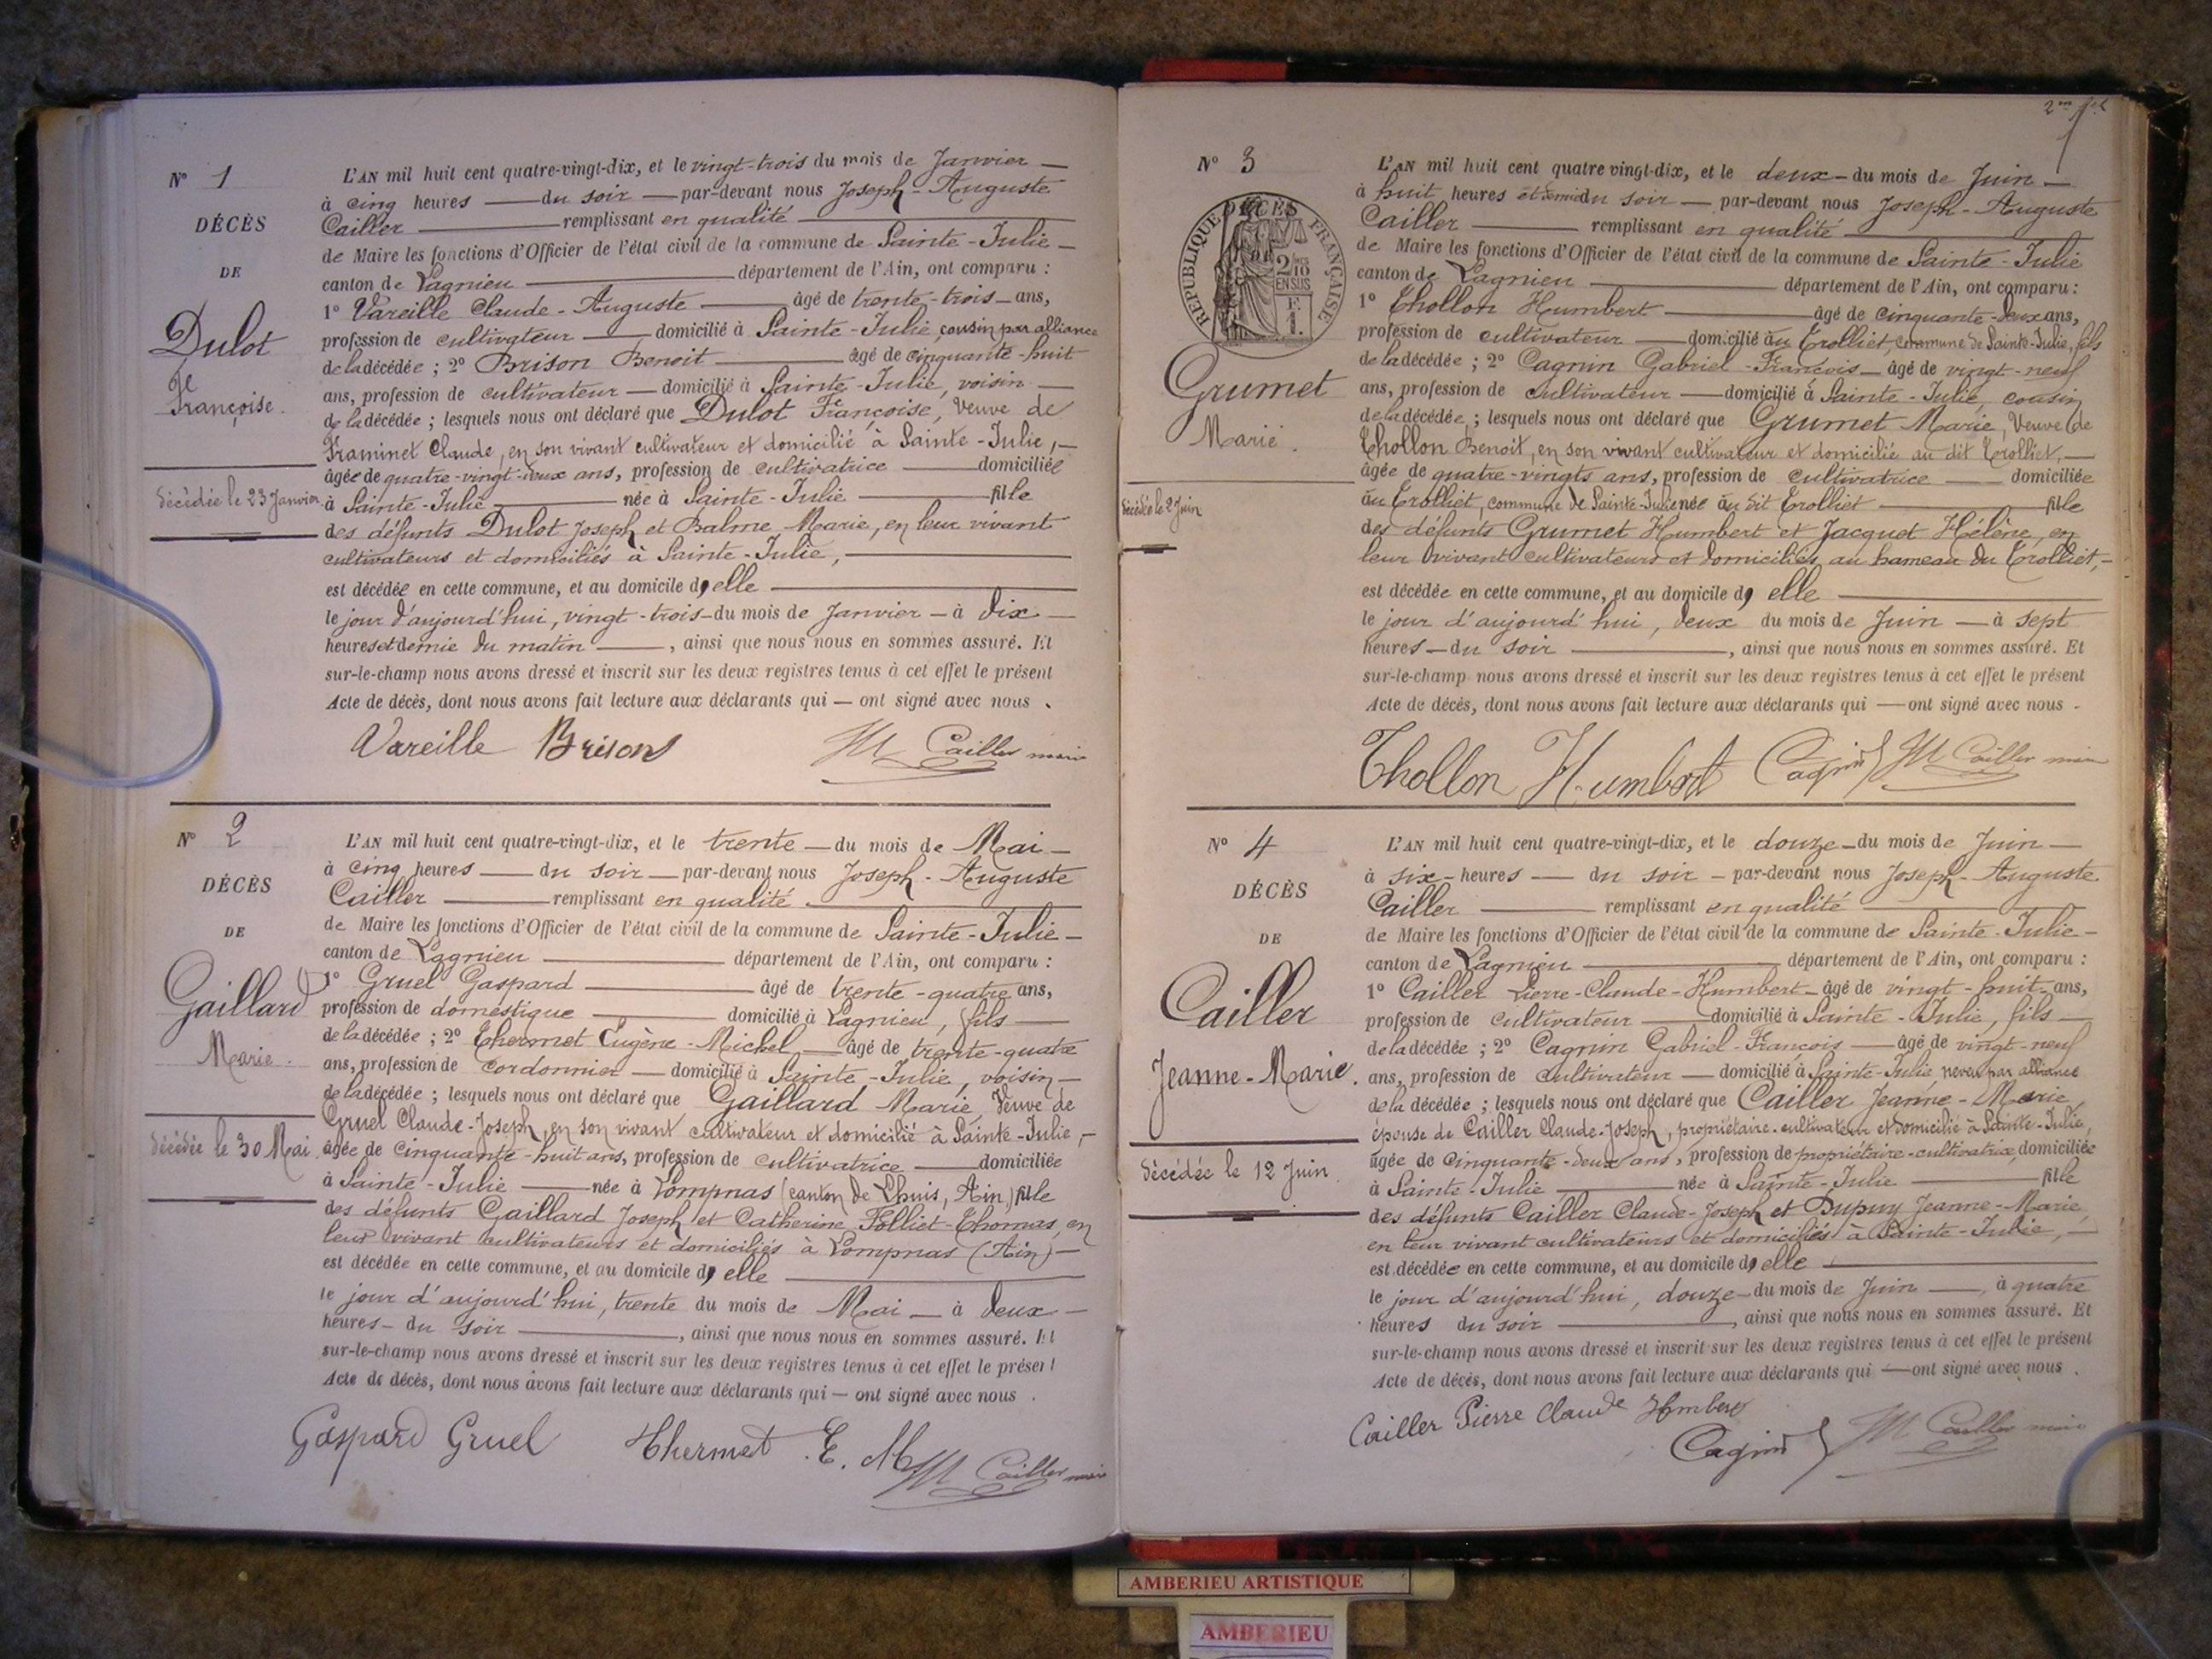 N° 1
DÉCÈS
DE
Dulot
Fe
Françoise.
décédée le 23 Janvier
L'AN mil huit cent quatre-vingt-dix, et le vingt-trois du mois de Janvier —
à cinq heures — du soir — par-devant nous Joseph-Auguste
Cailler — remplissant en qualité —
de Maire les fonctions d'Officier de l'état civil de la commune de Sainte-Julie —
canton de Lagnieu — département de l'Ain, ont comparu :
1° Vareille Claude-Auguste — âgé de trente-trois — ans,
profession de cultivateur — domicilié à Sainte-Julie, cousin par alliance
de la décédée ; 2° Brison Benoit — âgé de cinquante-huit
ans, profession de cultivateur — domicilié à Sainte-Julie, voisin —
de la décédée ; lesquels nous ont déclaré que Dulot Françoise, Veuve de
Framinet Claude, en son vivant cultivateur et domicilié à Sainte-Julie, —
âgée de quatre-vingt-deux ans, profession de cultivatrice — domiciliée
à Sainte-Julie — née à Sainte-Julie — fille
des défunts Dulot Joseph et Balme Marie, en leur vivant
cultivateurs et domiciliés à Sainte-Julie, —
est décédée en cette commune, et au domicile d'elle —
le jour d'aujourd'hui, vingt-trois — du mois de Janvier — à dix —
heures et demie du matin —, ainsi que nous nous en sommes assuré. Et
sur-le-champ nous avons dressé et inscrit sur les deux registres tenus à cet effet le présent
Acte de décès, dont nous avons fait lecture aux déclarants qui — ont signé avec nous .
Vareille Brison Cailler maire
N° 2
DÉCÈS
DE
Gaillard
Marie.
décédée le 30 Mai
L'AN mil huit cent quatre-vingt-dix, et le trente — du mois de Mai —
à cinq heures — du soir — par-devant nous Joseph-Auguste
Cailler — remplissant en qualité —
de Maire les fonctions d'Officier de l'état civil de la commune de Sainte-Julie —
canton de Lagnieu — département de l'Ain, ont comparu :
1° Gruel Gaspard — âgé de trente-quatre ans,
profession de domestique — domicilié à Lagnieu, fils —
de la décédée ; 2° Thermet Eugène-Michel — âgé de trente-quatre
ans, profession de cordonnier — domicilié à Sainte-Julie, voisin —
de la décédée ; lesquels nous ont déclaré que Gaillard Marie, Veuve de
Gruel Claude-Joseph, en son vivant cultivateur et domicilié à Sainte-Julie, —
âgée de cinquante-huit ans, profession de cultivatrice — domiciliée
à Sainte-Julie — née à Lompnas (canton de Lhuis, Ain) fille
des défunts Gaillard Joseph et Catherine Folliet-Thomas, en
leur vivant cultivateurs et domiciliés à Lompnas (Ain) —
est décédée en cette commune, et au domicile d'elle —
le jour d'aujourd'hui, trente du mois de Mai — à deux —
heures — du soir —, ainsi que nous nous en sommes assuré. Et
sur-le-champ nous avons dressé et inscrit sur les deux registres tenus à cet effet le présent
Acte de décès, dont nous avons fait lecture aux déclarants qui — ont signé avec nous .
Gaspard Gruel Thermet E. M Cailler maire
N° 3
DÉCÈS
RÉPUBLIQUE FRANÇAISE
2/10 EN SUS
F. 1.
Grumet
Marie.
décédée le 2 Juin
L'AN mil huit cent quatre vingt-dix, et le deux — du mois de Juin —
à huit heures et demie du soir — par-devant nous Joseph-Auguste
Cailler — remplissant en qualité —
de Maire les fonctions d'Officier de l'état civil de la commune de Sainte-Julie
canton de Lagnieu — département de l'Ain, ont comparu :
1° Thollon Humbert — âgé de cinquante-deux ans,
profession de cultivateur — domicilié au Trolliet, commune de Sainte-Julie, fils
de la décédée ; 2° Cagnin Gabriel-François — âgé de vingt-neuf
ans, profession de cultivateur — domicilié à Sainte-Julie, cousin
de la décédée ; lesquels nous ont déclaré que Grumet Marie, Veuve de
Thollon Benoit, en son vivant cultivateur et domicilié au dit Trolliet, —
âgée de quatre-vingts ans, profession de cultivatrice — domiciliée
au Trolliet, commune de Sainte-Julie née au dit Trolliet — fille
des défunts Grumet Humbert et Jacquet Hélène, en
leur vivant cultivateurs et domiciliés au hameau du Trolliet, —
est décédée en cette commune, et au domicile d'elle —
le jour d'aujourd'hui, deux du mois de Juin — à sept
heures — du soir —, ainsi que nous nous en sommes assuré. Et
sur-le-champ nous avons dressé et inscrit sur les deux registres tenus à cet effet le présent
Acte de décès, dont nous avons fait lecture aux déclarants qui — ont signé avec nous .
Thollon Humbert Cagnin Cailler maire
N° 4
DÉCÈS
DE
Cailler
Jeanne-Marie.
décédée le 12 Juin
L'AN mil huit cent quatre-vingt-dix, et le douze — du mois de Juin —
à six — heures — du soir — par-devant nous Joseph-Auguste
Cailler — remplissant en qualité —
de Maire les fonctions d'Officier de l'état civil de la commune de Sainte-Julie —
canton de Lagnieu — département de l'Ain, ont comparu :
1° Cailler Pierre-Claude-Humbert — âgé de vingt-huit — ans,
profession de cultivateur — domicilié à Sainte-Julie, fils —
de la décédée ; 2° Cagnin Gabriel-François — âgé de vingt-neuf
ans, profession de cultivateur — domicilié à Sainte-Julie, neveu par alliance
de la décédée ; lesquels nous ont déclaré que Cailler Jeanne-Marie,
épouse de Cailler Claude-Joseph, propriétaire-cultivateur et domicilié à Sainte-Julie,
âgée de cinquante-deux ans, profession de propriétaire-cultivatrice, domiciliée
à Sainte-Julie — née à Sainte-Julie — fille
des défunts Cailler Claude-Joseph et Dupuy Jeanne-Marie,
en leur vivant cultivateurs et domiciliés à Sainte-Julie, —
est décédée en cette commune, et au domicile d'elle —
le jour d'aujourd'hui, douze — du mois de Juin —, à quatre
heures du soir —, ainsi que nous nous en sommes assuré. Et
sur-le-champ nous avons dressé et inscrit sur les deux registres tenus à cet effet le présent
Acte de décès, dont nous avons fait lecture aux déclarants qui — ont signé avec nous .
Cailler Pierre Claude Humbert
Cagnin Cailler maire
AMBERIEU ARTISTIQUE
AMBERIEU